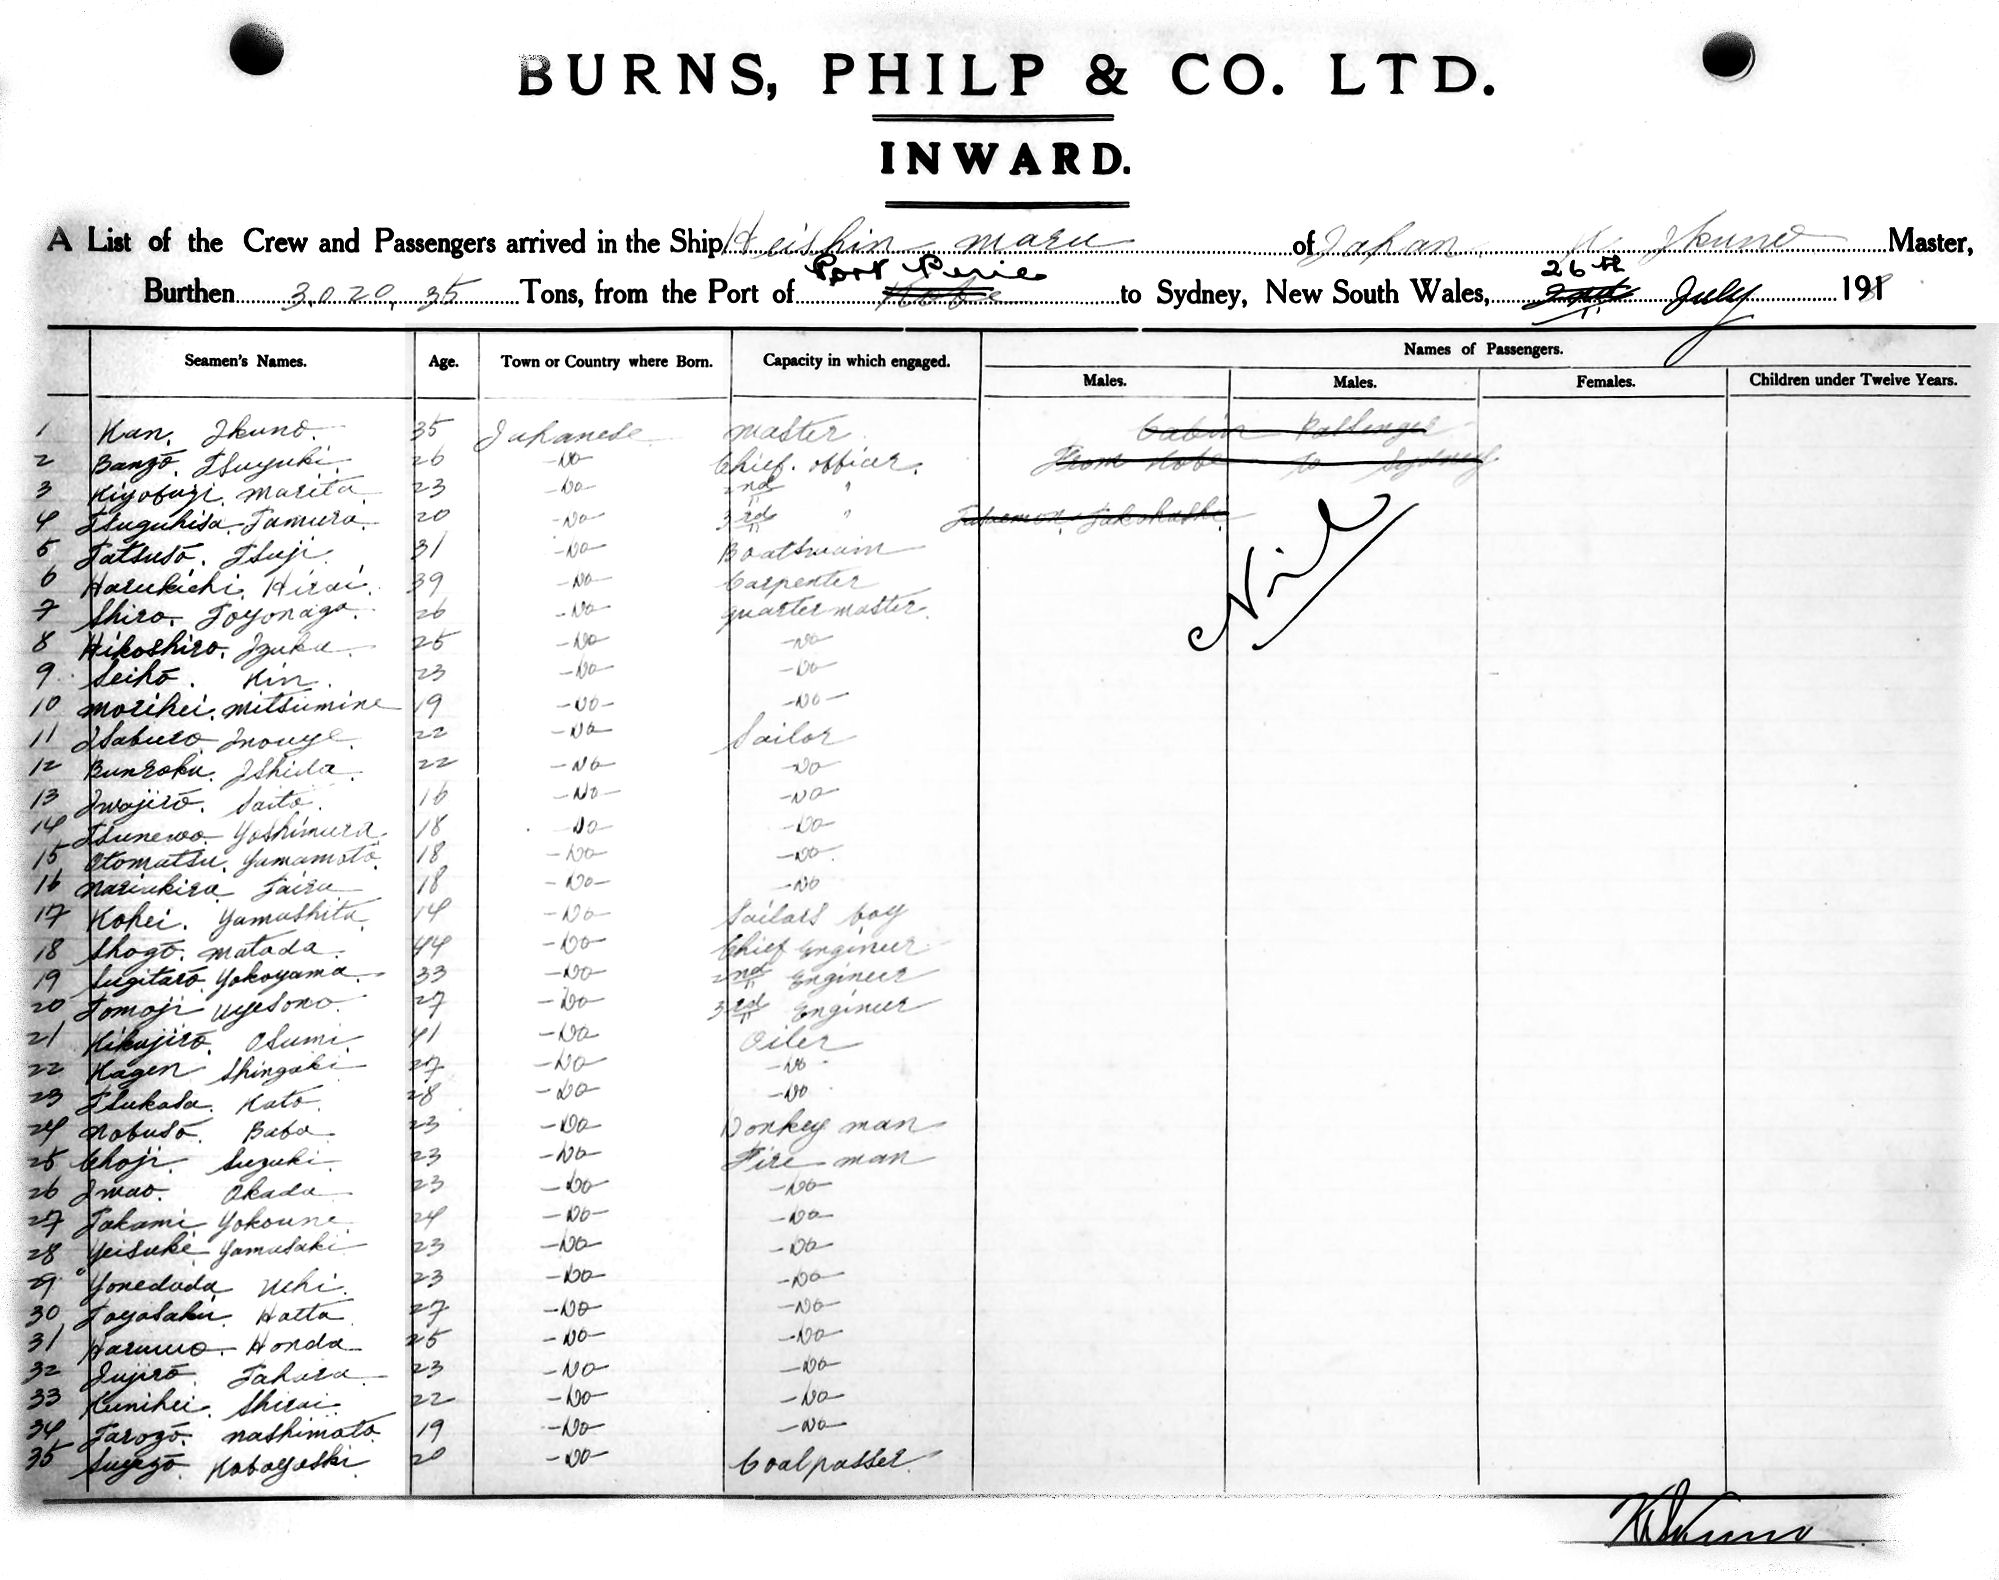 BURNS, PHILP & CO. LTD.
INWARD.
A List of the Crew and Passengers arrived in the Ship Heishin maru of Japan K Ikuno Master,
Port Pirie 26th
Burthen 3020,35 Tons, from the Port of Kobe to Sydney, New South Wales, July 191
Seamen's Names. Age. Town or Country where Born. Capacity in which engaged. Names of Passengers.
Males. Males. Females. Children under Twelve Years.
1 Kan. Ikuno. 35 Japanese master Cabin Passenger
2 Banzō. Tsuyuki. 26 -Do Chief. officer. From Kobe to Sydney
3 Kiyofuzi. Marita. 23 -Do- 2nd "
4 Tsuguhisa. Tamura. 20 -Do- 3rd " Takahashi
5 Tatsusō. Tsuji. 31 -Do- Boatswain
Nil
6 Harukichi. Hirai. 39 -Do- Carpenter
7 Shiro. Toyonaga. 26 -Do- quarter master.
8 Hikoshiro. Izuka. 25 -Do- -Do-
9 Seihō. Kin. 23 -Do- -Do-
10 Morihei. Mitsumine 19 -Do- -Do-
11 Isaburo. Inouye. 22 -Do- Sailor
12 Bunroku. Ishida. 22 -Do- -Do-
13 Iwajirō. Saito. 16 -Do- -Do-
14 Tsunewo. Yoshimura. 18 Do- -Do-
15 Otomatsu. Yamamotō. 18 -Do- -Do-
16 Nariakira Taira 18 -Do- -Do
17 Kohei. Yamashita. 14 -Do- Sailars boy
18 Shogō. Matada. 44 -Do- Chief Engineer
19 Sugitarō. Yokoyama. 33 -Do- 2nd Engineer
20 Tomoji Uyesono. 27 -Do- 3rd Engineer
21 Kikujirō. Osumi. 41 -Do- Oiler
22 Kagen Shingaki 27 -Do- -Do-
23 Tsukasa. Kato. 28 -Do- -Do-
24 Nobusō. Baba. 23 -Do- Donkey man
25 Choji. Suzuki. 23 -Do- Fire man
26 Iwao. Okada 23 -Do- -Do-
27 Takami Yokoune. 24 -Do- -Do-
28 Yeisuke Yamasaki 23 -Do- -Do-
29 Yonedada Uehi. 23 -Do- -Do-
30 Toyosaku. Hatta. 27 -Do- -Do-
31 Haruwo. Honda. 25 -Do- -Do-
32 Jujirō. Tahara. 23 -Do- -Do-
33 Kunihei. Shirai. 22 -Do- -Do-
34 Tarozō. Nashimoto. 19 -Do- -Do-
35 Suyezō. Kobayashi. 20 -Do- Coal passer.
K Ikuno